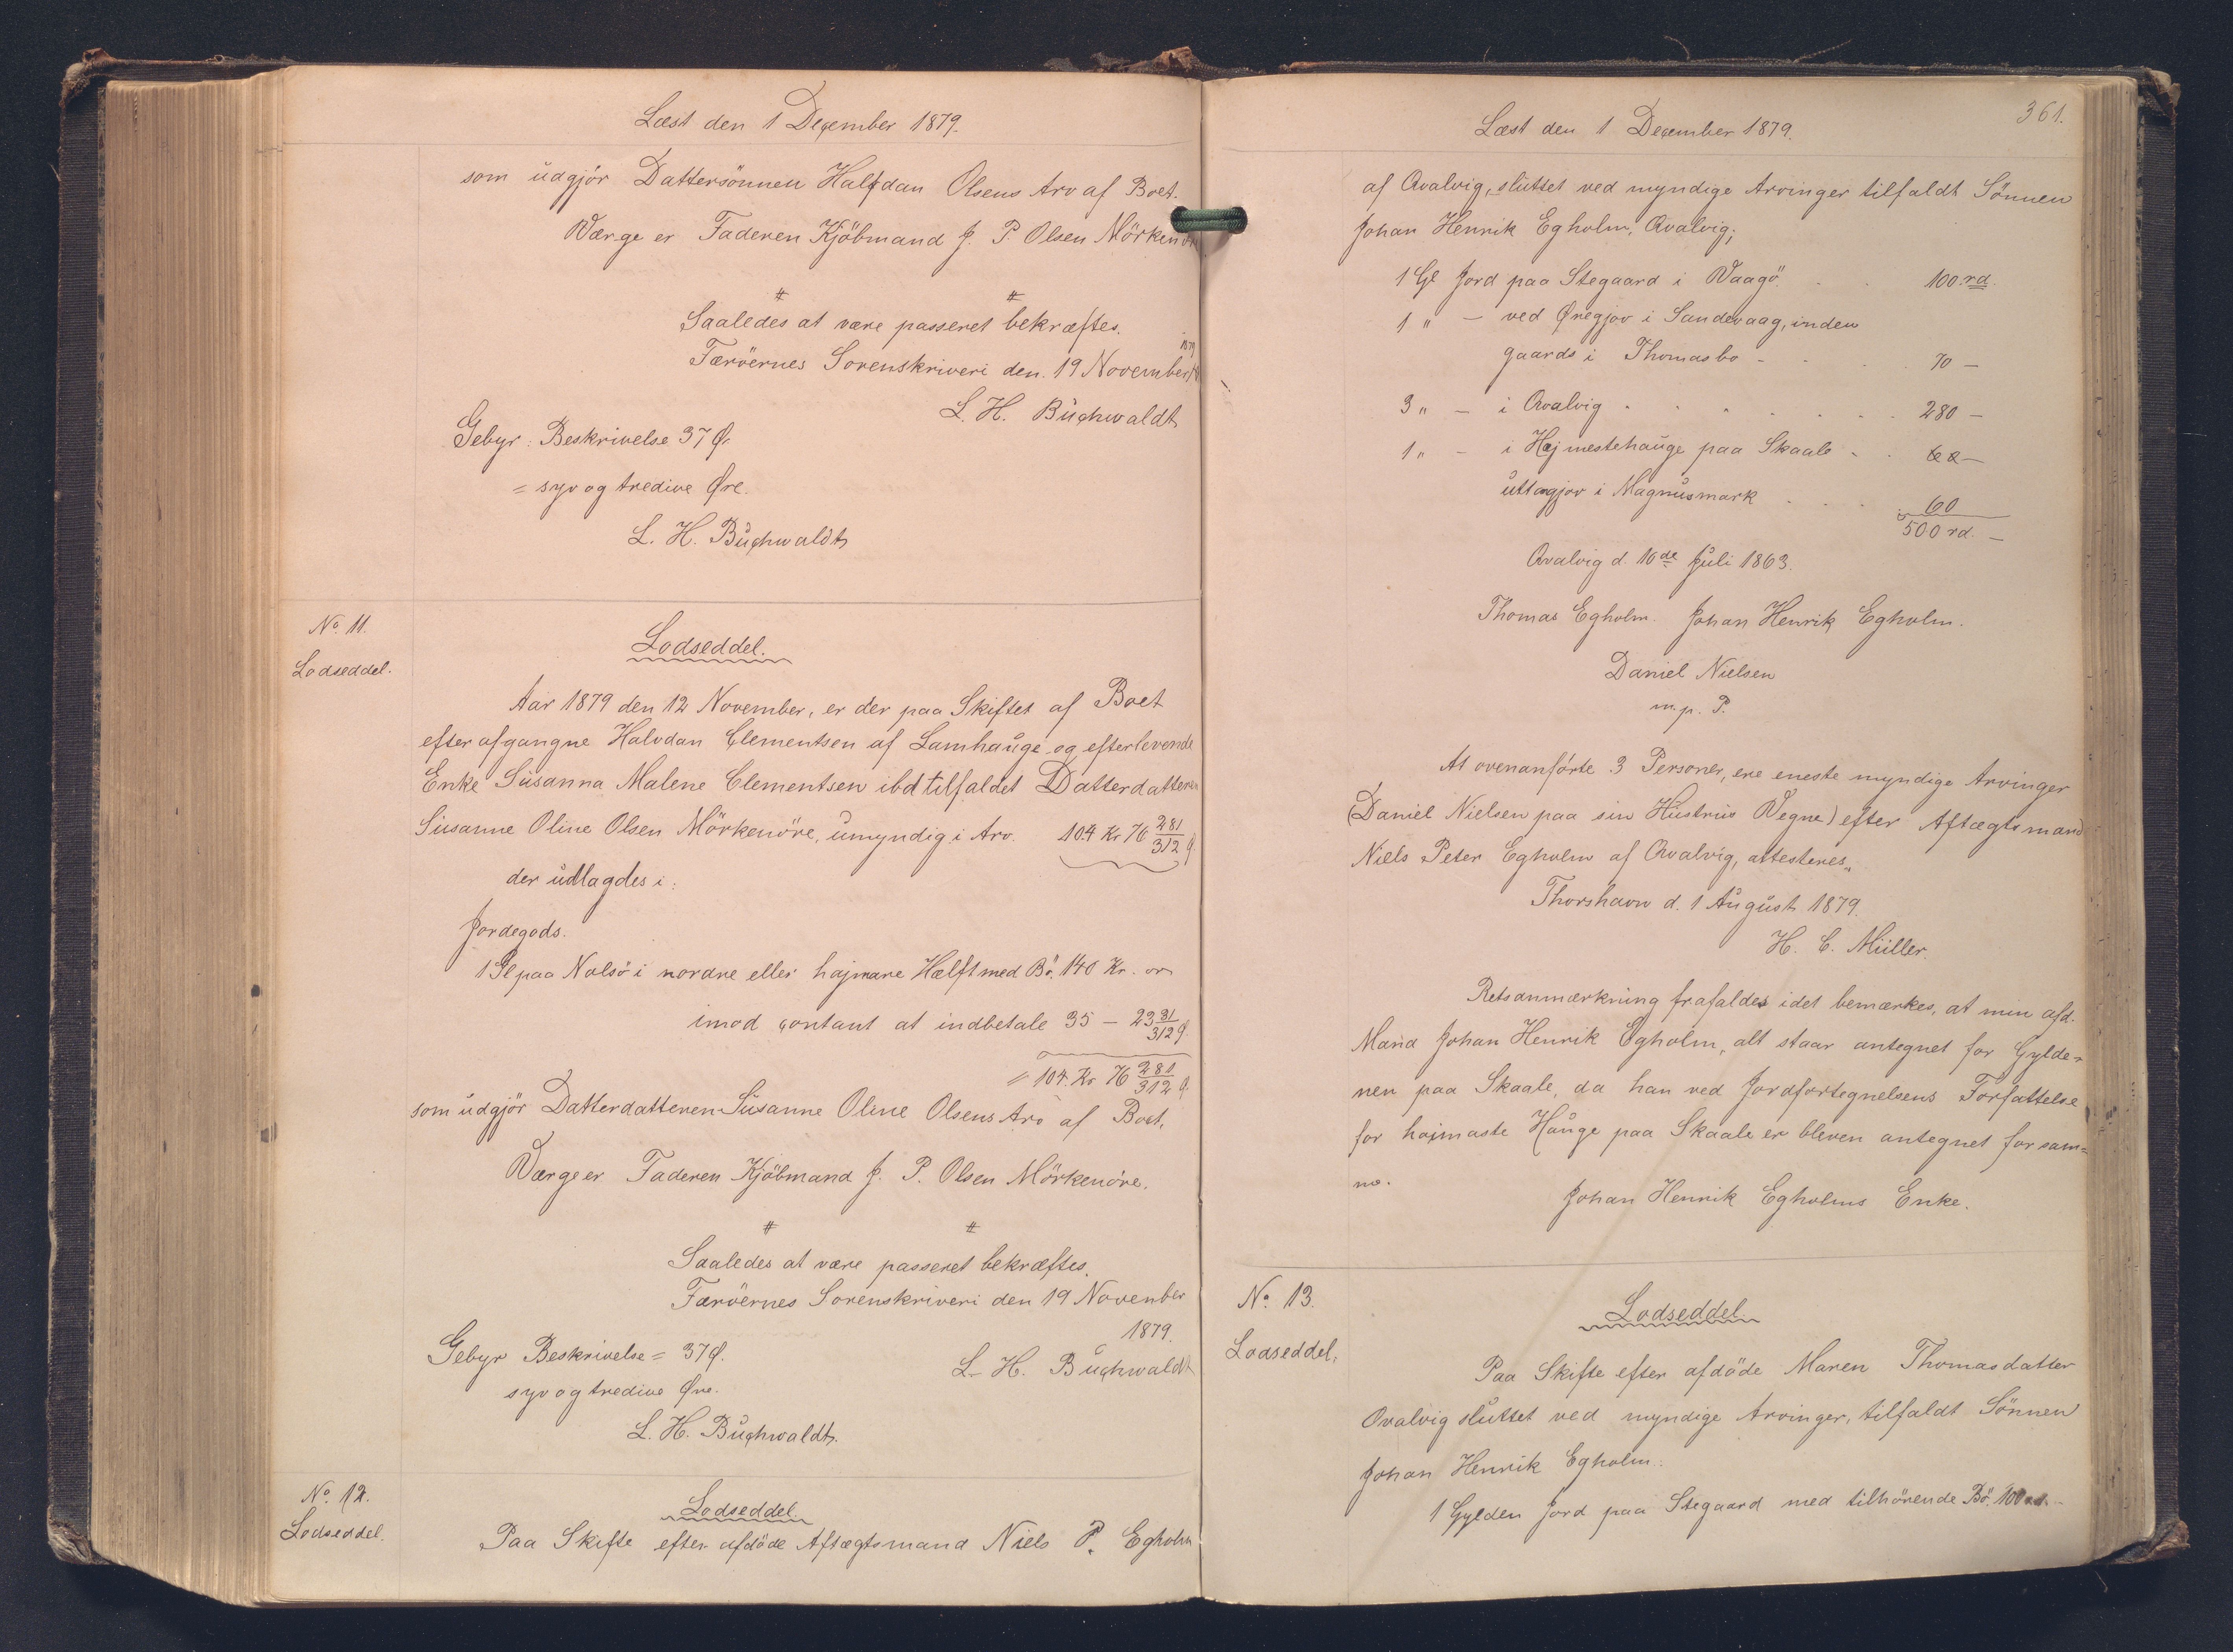 Læst den 1 December 1879.
som udgjör Dattersönnen Halfdan Olsens Arv af Boet.
Værge er Faderen Kjöbmand J. P. Olsen Mörkenöre
# #
Saaledes at være passeret bekræftes.
Færöernes Sorenskriveri den 19 November 1879
L. H. Buchwaldt
Gebyr: Beskrivelse 37 Ø.
= syv og tredive Øre.
L. H. Buchwaldt
No. 11.
Lodseddel.
Lodseddel.
Aar 1879 den 12 November, er der paa Skiftet af Boet
efter afgangne Halvdan Clementsen af Lamhauge og efterlevende
Enke Susanna Malene Clementsen ibd tilfaldet Datterdatteren
Susanne Oline Olsen Mörkenöre, umyndig i Arv. 104 Kr 76 281/312 Ø
der udlagdes i:
Jordegods.
1 Gl paa Nolsö i nordre eller hajmare Hælft med Bö. 140 Kr. or
imod contant at indbetale 35 - 23 31/312 Ø
= 104. Kr 76 281/312 Ø
som udgjör Datterdatteren Susanne Oline Olsens Arv af Boet.
Værge er Faderen Kjöbmand J. P. Olsen Mörkenöre.
# #
Saaledes at være passeret bekræftes.
Færöernes Sorenskriveri den 19 November
1879.
Gebyr Beskrivelse = 37 Ø.
L. H. Buchwaldt
syv og tredive Øre.
L. H. Buchwaldt.
No. 12.
Lodseddel.
Lodseddel.
Paa Skifte efter afdöde Aftægtsmand Niels P. Egholm
361.
Læst den 1 December 1879.
af Qvalvig, sluttet ved myndige Arvinger tilfaldt Sönnen
Johan Henrik Egholm, Qvalvig;
1 Gl Jord paa Stegaard i Vaagö. . . 100 rd.
1 " - ved Øregjov i Sandevaag, inden
gaards i Thomasbo - - . . 70 -
3 " - i Qvalvig . . . . . . . 280 -
1 " - i Hejmestehauge paa Skaale . .
uttagjov i Magnusmark . . . 60
500 rd. -
Qvalvig d. 16de Juli 1863.
Thomas Egholm. Johan Henrik Egholm.
Daniel Nielsen
m. p. P.
At ovenanförte 3 Personer, ere eneste myndige Arvinger
(Daniel Nielsen paa sin Hustrus Vegne) efter Aftægtsmand
Niels Peter Egholm af Qvalvig, attesteres.
Thorshavn d. 1 August 1879.
H. C. Müller.
Retsanmærkning frafaldes idet bemærkes, at min afd.
Mand Johan Henrik Egholm, alt staar antegnet for Gylde-
nen paa Skaale, da han ved Jordfortegnelsens Forfattelse
for hajmaste Hauge paa Skaale er bleven antegnet for sam-
me.
Johan Henrik Egholms Enke.
No. 13.
Lodseddel.
Lodseddel.
Paa Skifte efter afdöde Maren Thomasdatter
Qvalvig sluttet ved myndige Arvinger, tilfaldt Sönnen
Johan Henrik Egholm:
1 Gylden Jord paa Stegaard med tilhörende Bö. 100 rd. -